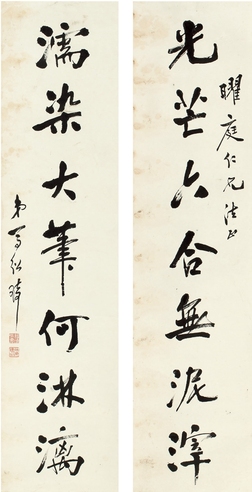 光芒六合無泥滓
曜庭仁兄法正
濡染大筆何淋漓
弟馮紹琦